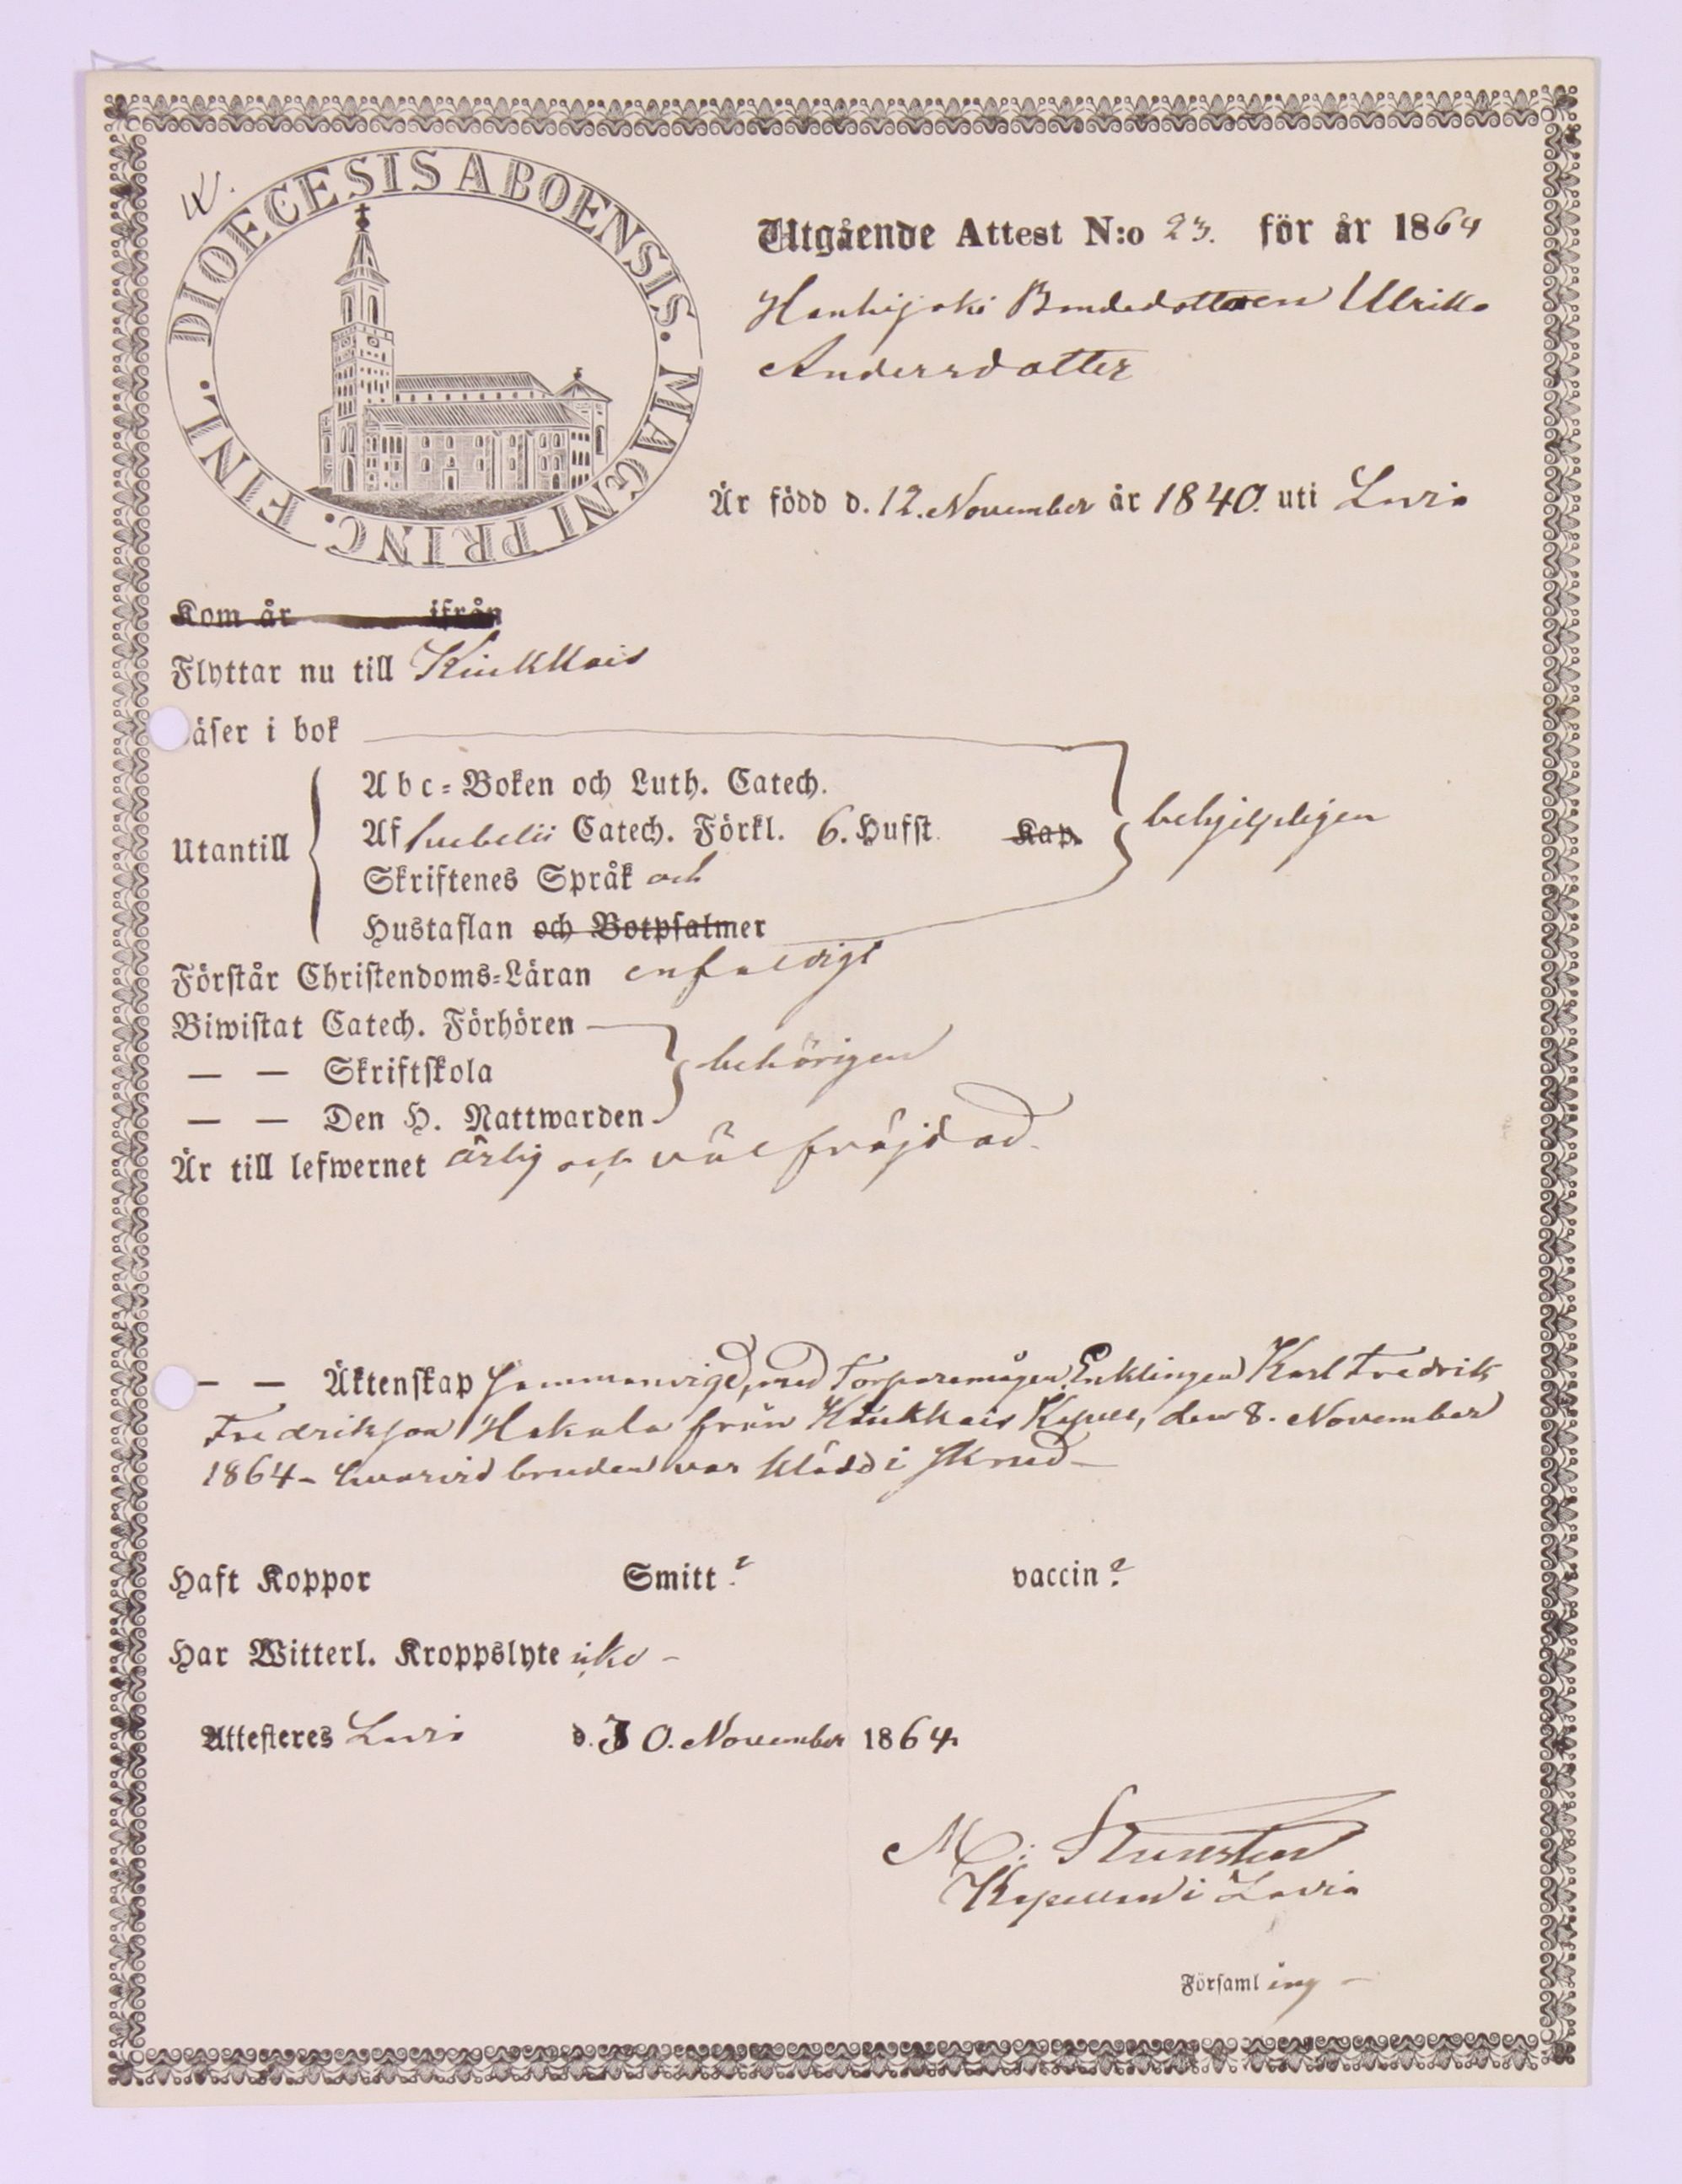 DIOECESIS ABOENSIS. MAGNI PRINC. FINL.
Utgående Attest N:o 23. för år 1864
Honkijoki Bondedottren Ulrika
Andersdotter
Är född d. 12. November år 1840. uti Lavia
Kom år ifrån
Flyttar nu till Kiukkais
äser i bok
Abc-Boken och Luth. Catech.
Utantill
Af Svebelii Catech. Förkl. 6. Hufst. Kap.
behjelpligen
Skriftenes Språk och
Hustaflan och Botpsalmer
Förstår Christendoms-Läran enfaldigt
Biwistat Catech. Förhören
— — Skriftskola
behörigen
— — Den H. Nattwarden
Är till lefwernet ärlig och välfräjdad.
— — Äktenskap sammanvigd, med Torparemågen Enklingen Karl Fredrik
Fredriksson Hakala från Kiukkais Kapell, den 8. November
1864 – hvarvid bruden var klädd i skrud –
Haft Koppor Smitt? vaccin?
Har Witterl. Kroppslyte icke –
Attesteres Lavia d. 30. November 1864.
M:
Kapellan i Lavia
Församling –